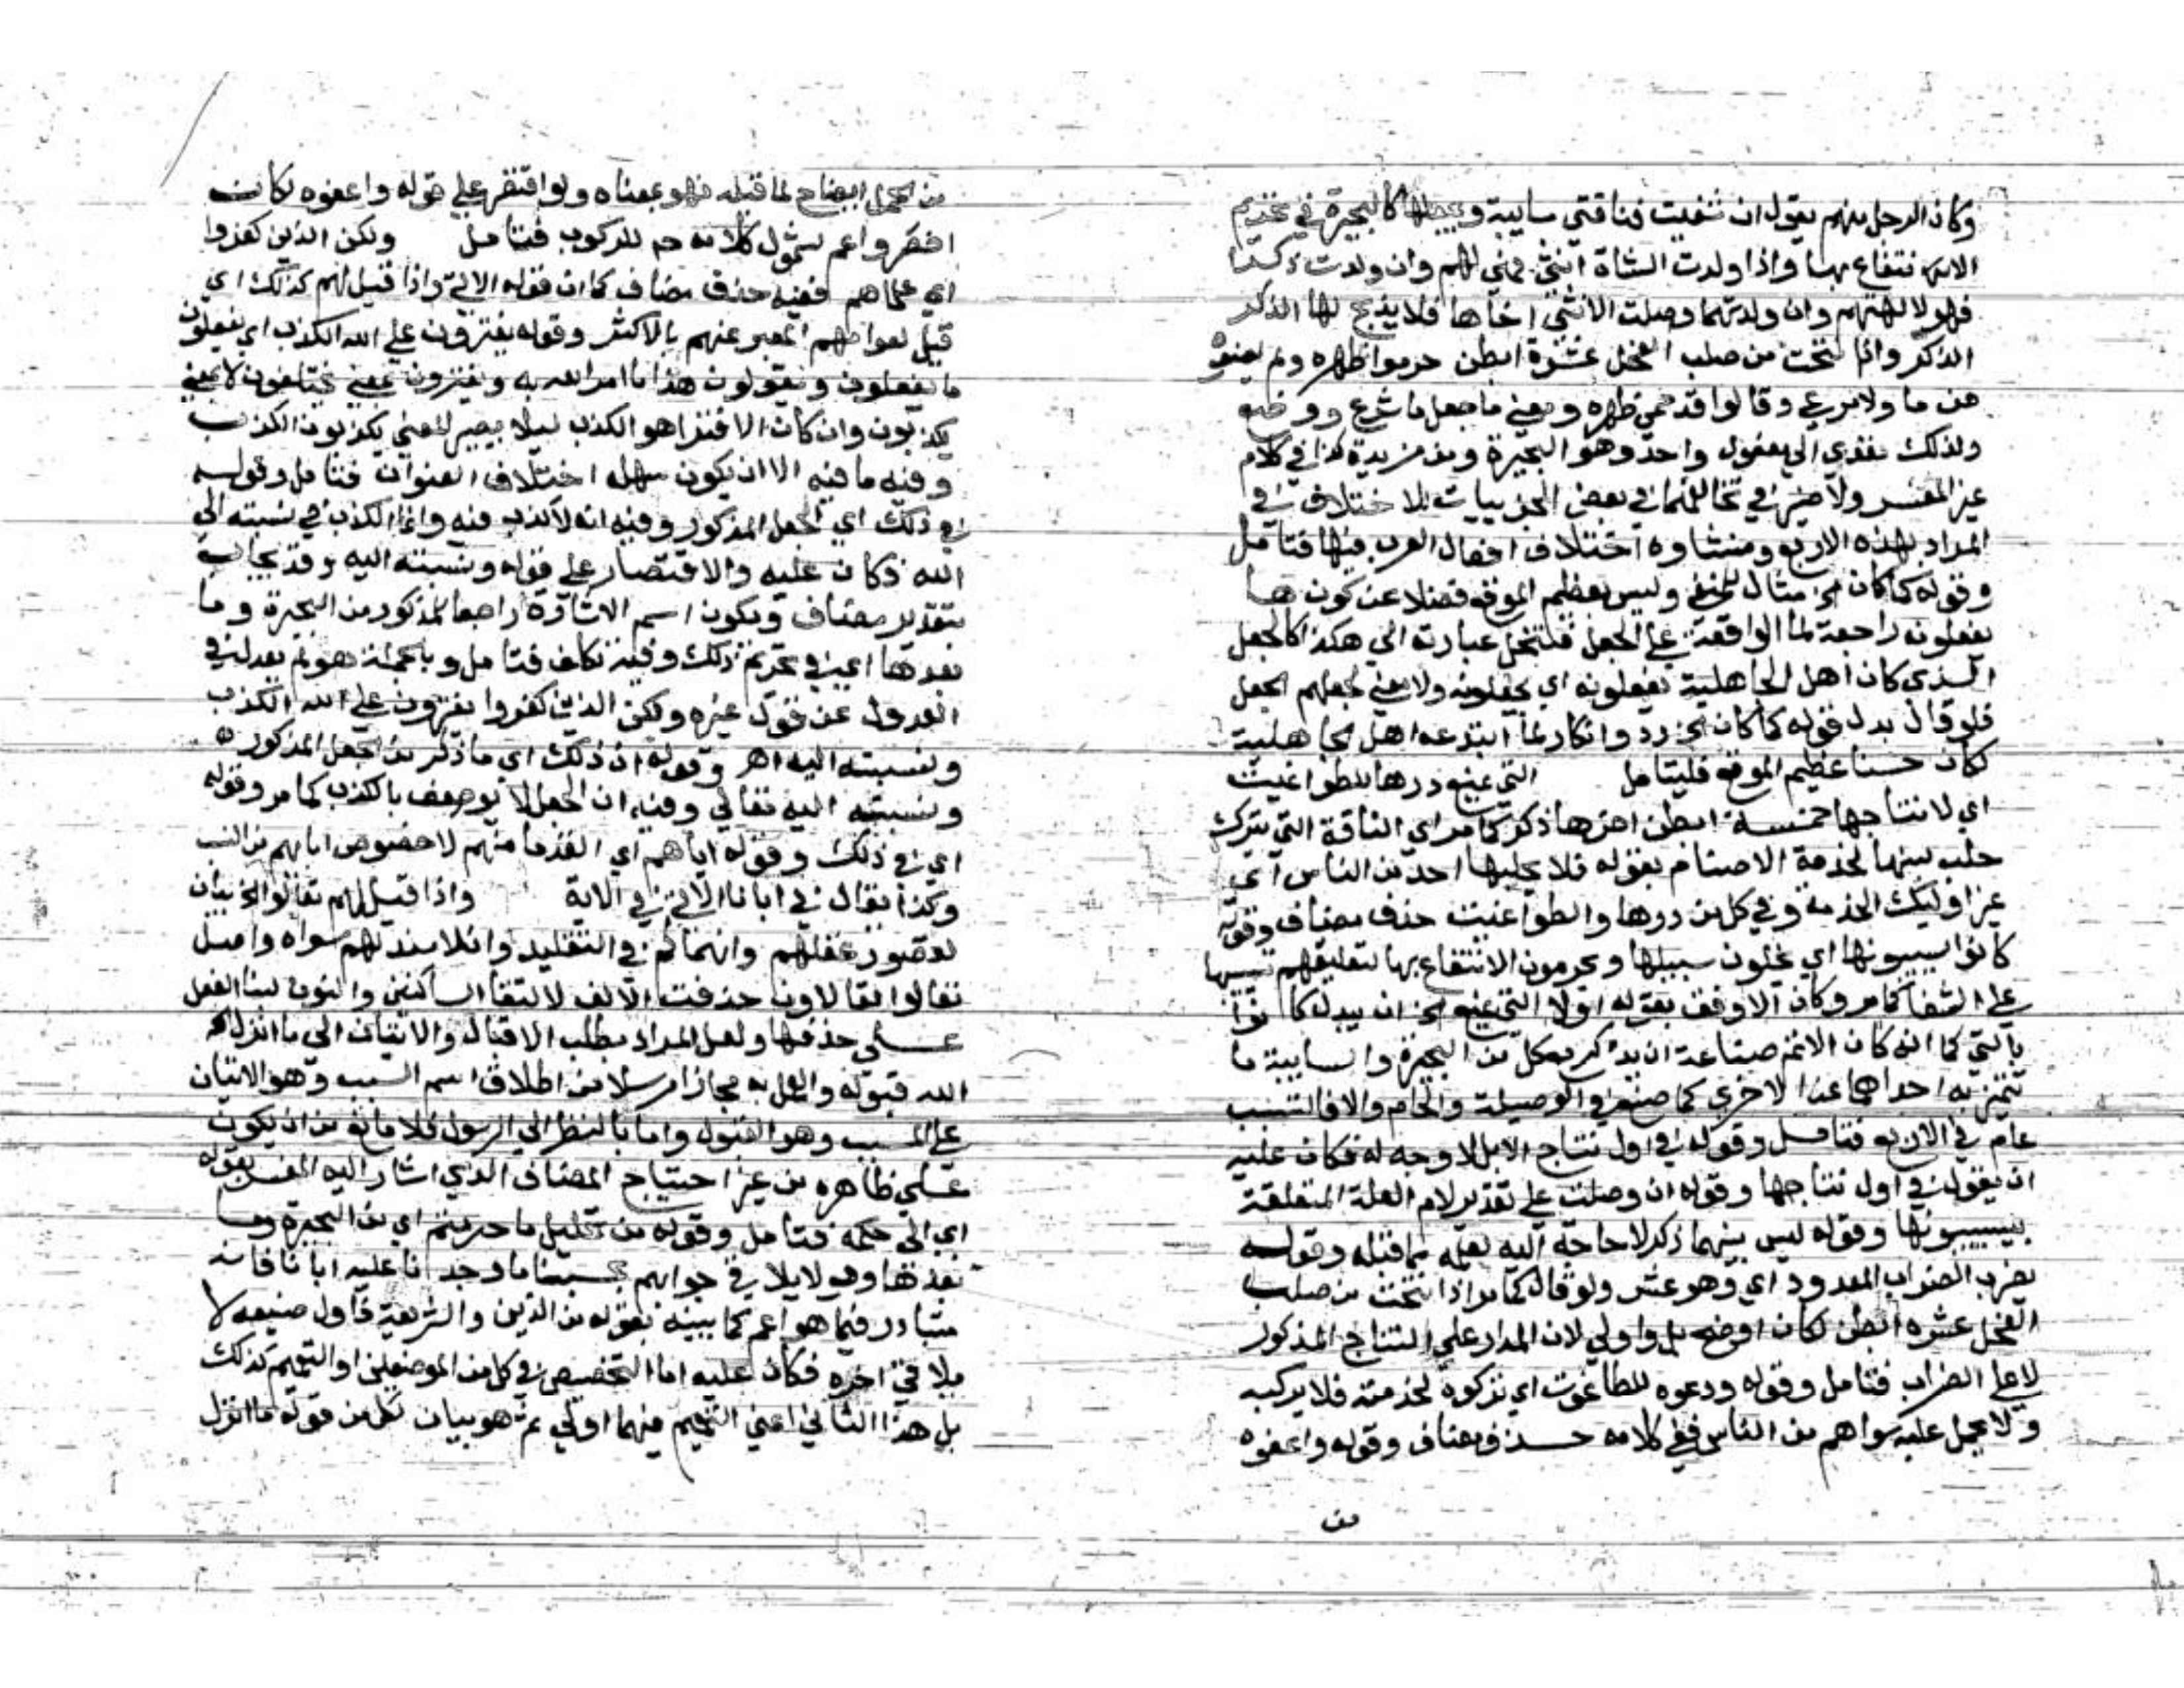 وكان الرجل منهم يقول ان شفيت فناقتي سايبة ويجعلها كالبحيرة في تحريم
الانتفاع بها واذا ولدت الشاة انثى فهي لهم وان ولدت ذكرا
فهو لالهتهم وان ولدتهما وصلت الانثى اخاها فلا يذبح لها الذكر
الذكر واذا نتجت من صلب الفحل عشرة ابطن حرموا ظهره ولم يمنعوه
من ما ولا مرعى وقالوا قد حمى ظهره ومعنى ما جعل ما شرع ووضع
ولذلك تعدى الى مفعول واحد وهو البحيرة ومن مزيدة كذا في كلام
غير المفسر ولا ضير في تخالفهما في بعض الجزييات للاختلاف في
المراد بهذه الاربع ومنشاوه اختلاف افعال العرب فيها فتامل
وقوله كما كان الخ مثال للمنفي وليس بعظيم الموقع فضلا عن كون ها
يفعلونه راجعة لما الواقعة على الجعل فلتنحل عبارته الى هكذا كالجعل
الذي كان اهل الجاهلية يفعلونه اي يجعلونه ولا معنى لجعلهم الجعل
فلو قال بدل قوله كما كان الخ رد وانكار لما ابتدعه اهل الجاهلية
لكان حسنا عظيم الموقع فليتامل التي يمنع درها للطواغيت
اي لانتاجها خمسة ابطن اخرها ذكر كما مر اي الناقة التي يترك
حلب لبنها لخدمة الاصنام بقوله فلا يحلبها احد من الناس اي
غير اوليك الخدمة وفي كل من درها والطواغيت حذف مضاف وقوله
كانوا يسيبونها اي يخلون سبيلها ويحرمون الانتفاع بها لتعليقهم تسيبها
على الشفا كما مر وكان الاوفق بقوله اولا التي يمنع الخ ان يبدل كانوا
بالتي كما انه كان الاتم صناعة ان يذكر بكل من البحيرة والسايبة ما
تتميز به احداهما عن الاخرى كما صنع في الوصيلة والحام والا فالتسيب
عام في الاربع فتامل وقوله في اول نتاج الابل لا وجه له فكان عليه
ان يقول في اول نتاجها وقوله ان وصلت على تقدير لام العلة المتعلقة
بيسيبونها وقوله ليس بينهما ذكر لا حاجة اليه لعلمه مما قبله وقوله
يضرب الضراب المعدود اي وهو عشر ولو قال كما مر اذا نتجت من صلب
الفحل عشرة ابطن لكان اوضح بل واولى لان المدار على النتاج المذكور
لا على الضراب فتامل وقوله ودعوه للطاغوت اي تركوه لخدمته فلا يركبه
ولا يحمل عليه سواهم من الناس ففي كلامه حذف مضاف وقوله واعفوه
من
من الحمل ايضاح لما قبله فهو بمعناه ولو اقتصر على قوله واعفوه لكان
اخصر واعم لشمول كلامه ح للركوب فتامل ولكن الذين كفروا
اي علماهم ففيه حذف مضاف كما ان قوله الاتي واذا قيل لهم كذلك اي
قيل لعوامهم المعبر عنهم بالاكثر وقوله يفترون على الله الكذب اي يفعلون
ما يفعلون ويقولون هذا ما امر الله به ويفترون بمعنى يختلقون لا بمعنى
يكذبون وان كان الافترا هو الكذب ليلا يصير المعنى يكذبون الكذب
وفيه ما فيه الا ان يكون سهله اختلاف العنوان فتامل وقوله
في ذلك اي الجعل المذكور وفيه انه لا كذب فيه وانما الكذب في نسبته الى
الله فكان عليه والاقتصار على قوله ونسبته اليه وقد يجاب
بتقدير مضاف ويكون اسم الاشارة راجعا للمذكور من البحيرة وما
بعدها اعني في تحريم ذلك وفيه تكلف فتامل وبالجملة هو لم يعدل في
العدول عن قول غيره ولكن الذين كفروا يفترون على الله الكذب
ونسبته اليه اهـ وقوله ان ذلك اي ما ذكر من الجعل المذكور
ونسبته اليه تعالى وفيه ان الجعل لا يوصف بالكذب كما مر وقوله
اي في ذلك وقوله اباهم اي القدما منهم لا خصوص ابايهم من النسب
وكذا يقال في ابانا الاتي في الاية واذا قيل لهم تعالوا الخ بيان
لقصور عقلهم وانهماكهم في التقليد وان لا سند لهم سواه واصل
تعالوا تعالاون حذفت الالف لالتقا الساكنين والنون لبنا الفعل
على حذفها ولعل المراد بطلب الاقبال والاتيان الى ما انزل
الله قبوله والعمل به مجازا مرسلا من اطلاق اسم السبب وهو الاتيان
على المسبب وهو القبول واما بالنظر الى الرسول فلا مانع من ان يكون
على ظاهره من غير احتياج المضاف الذي اشار اليه المفسر بقوله
اي الى حكمه فتامل وقوله من تحليل ما حرمتم اي من البحيرة وما
بعدها وهو لا يلا في جوابهم بحسبنا ما وجدنا عليه ابانا فانه
متبادر فيما هو اعم كما يبينه بقوله من الدين والشريعة فاول صنيعه لا
يلاقي اخره فكان عليه اما التخصيص في كل من الموضعين او التعميم كذلك
بل هذا الثاني اعني التعميم فيهما اولى ثم هو بيان لكل من قوله ما انزل